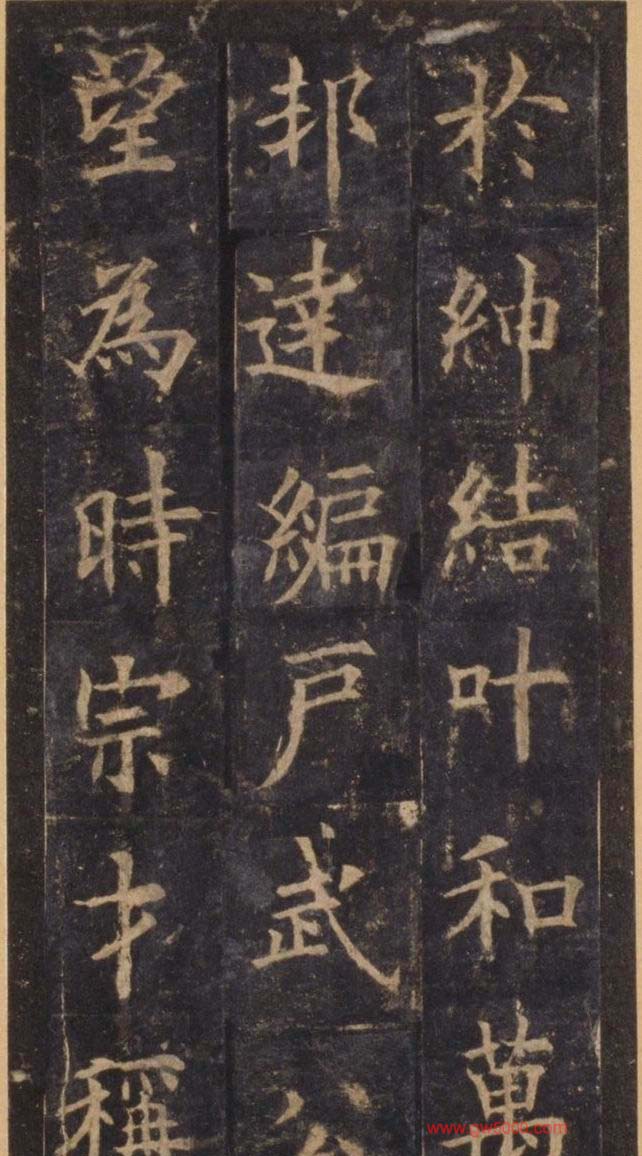 於紳結叶和萬
邦達編戶武公
望為時宗才稱
www.gw8000.com